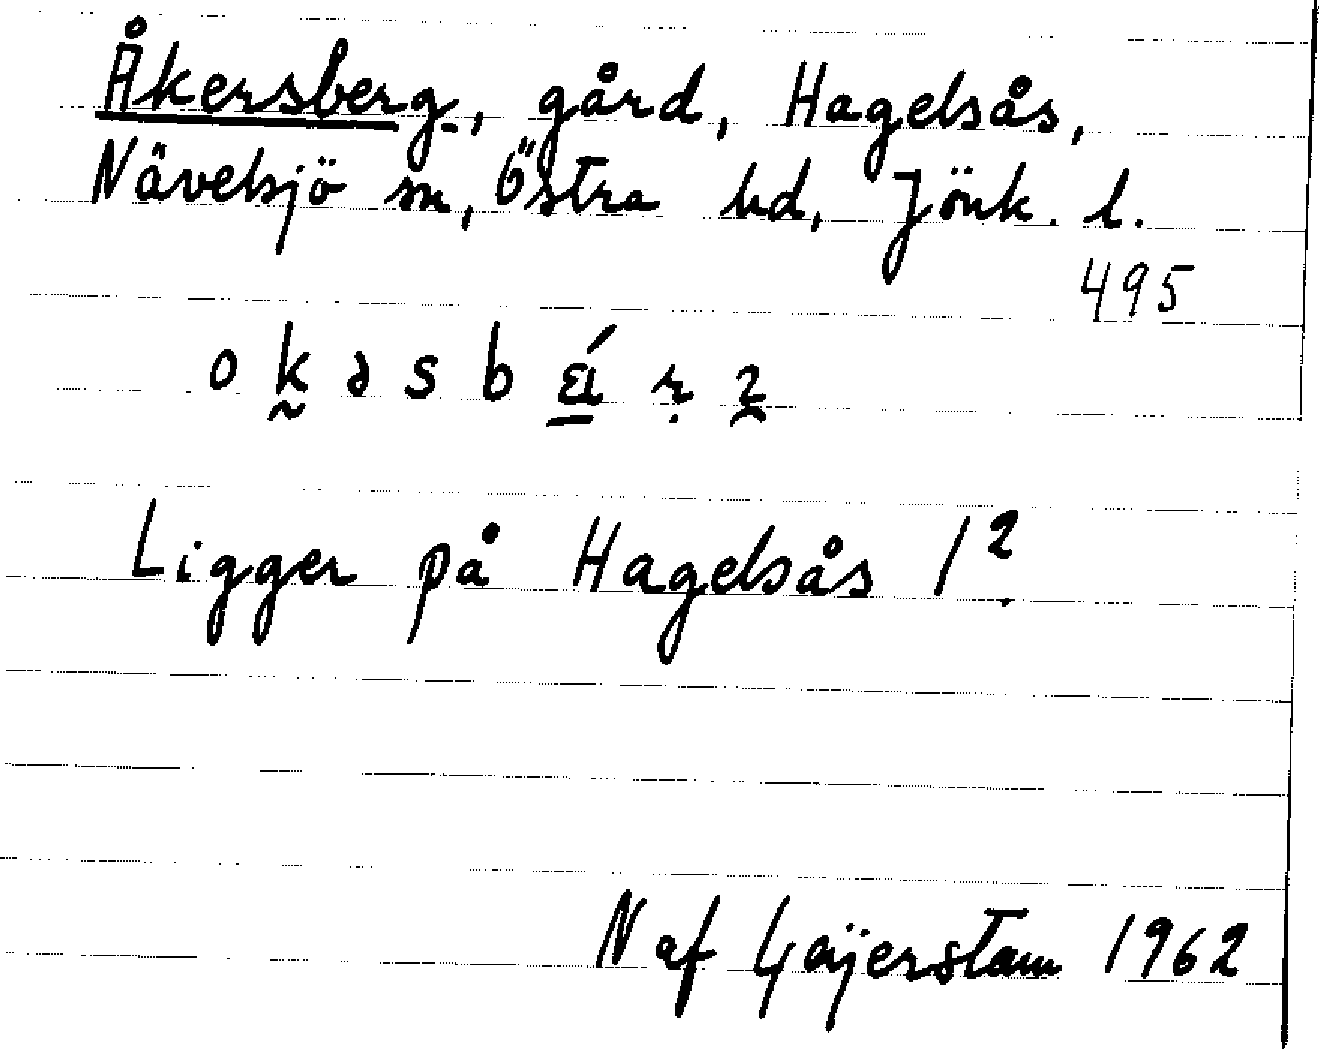 Åkersberg, gård, Hagelsås,
Nävelsjö sn, Östra hd, Jönk. l.
495
o k ə s b ǽ r z
Ligger på Hagelsås 1².
N af Geijerstam 1962